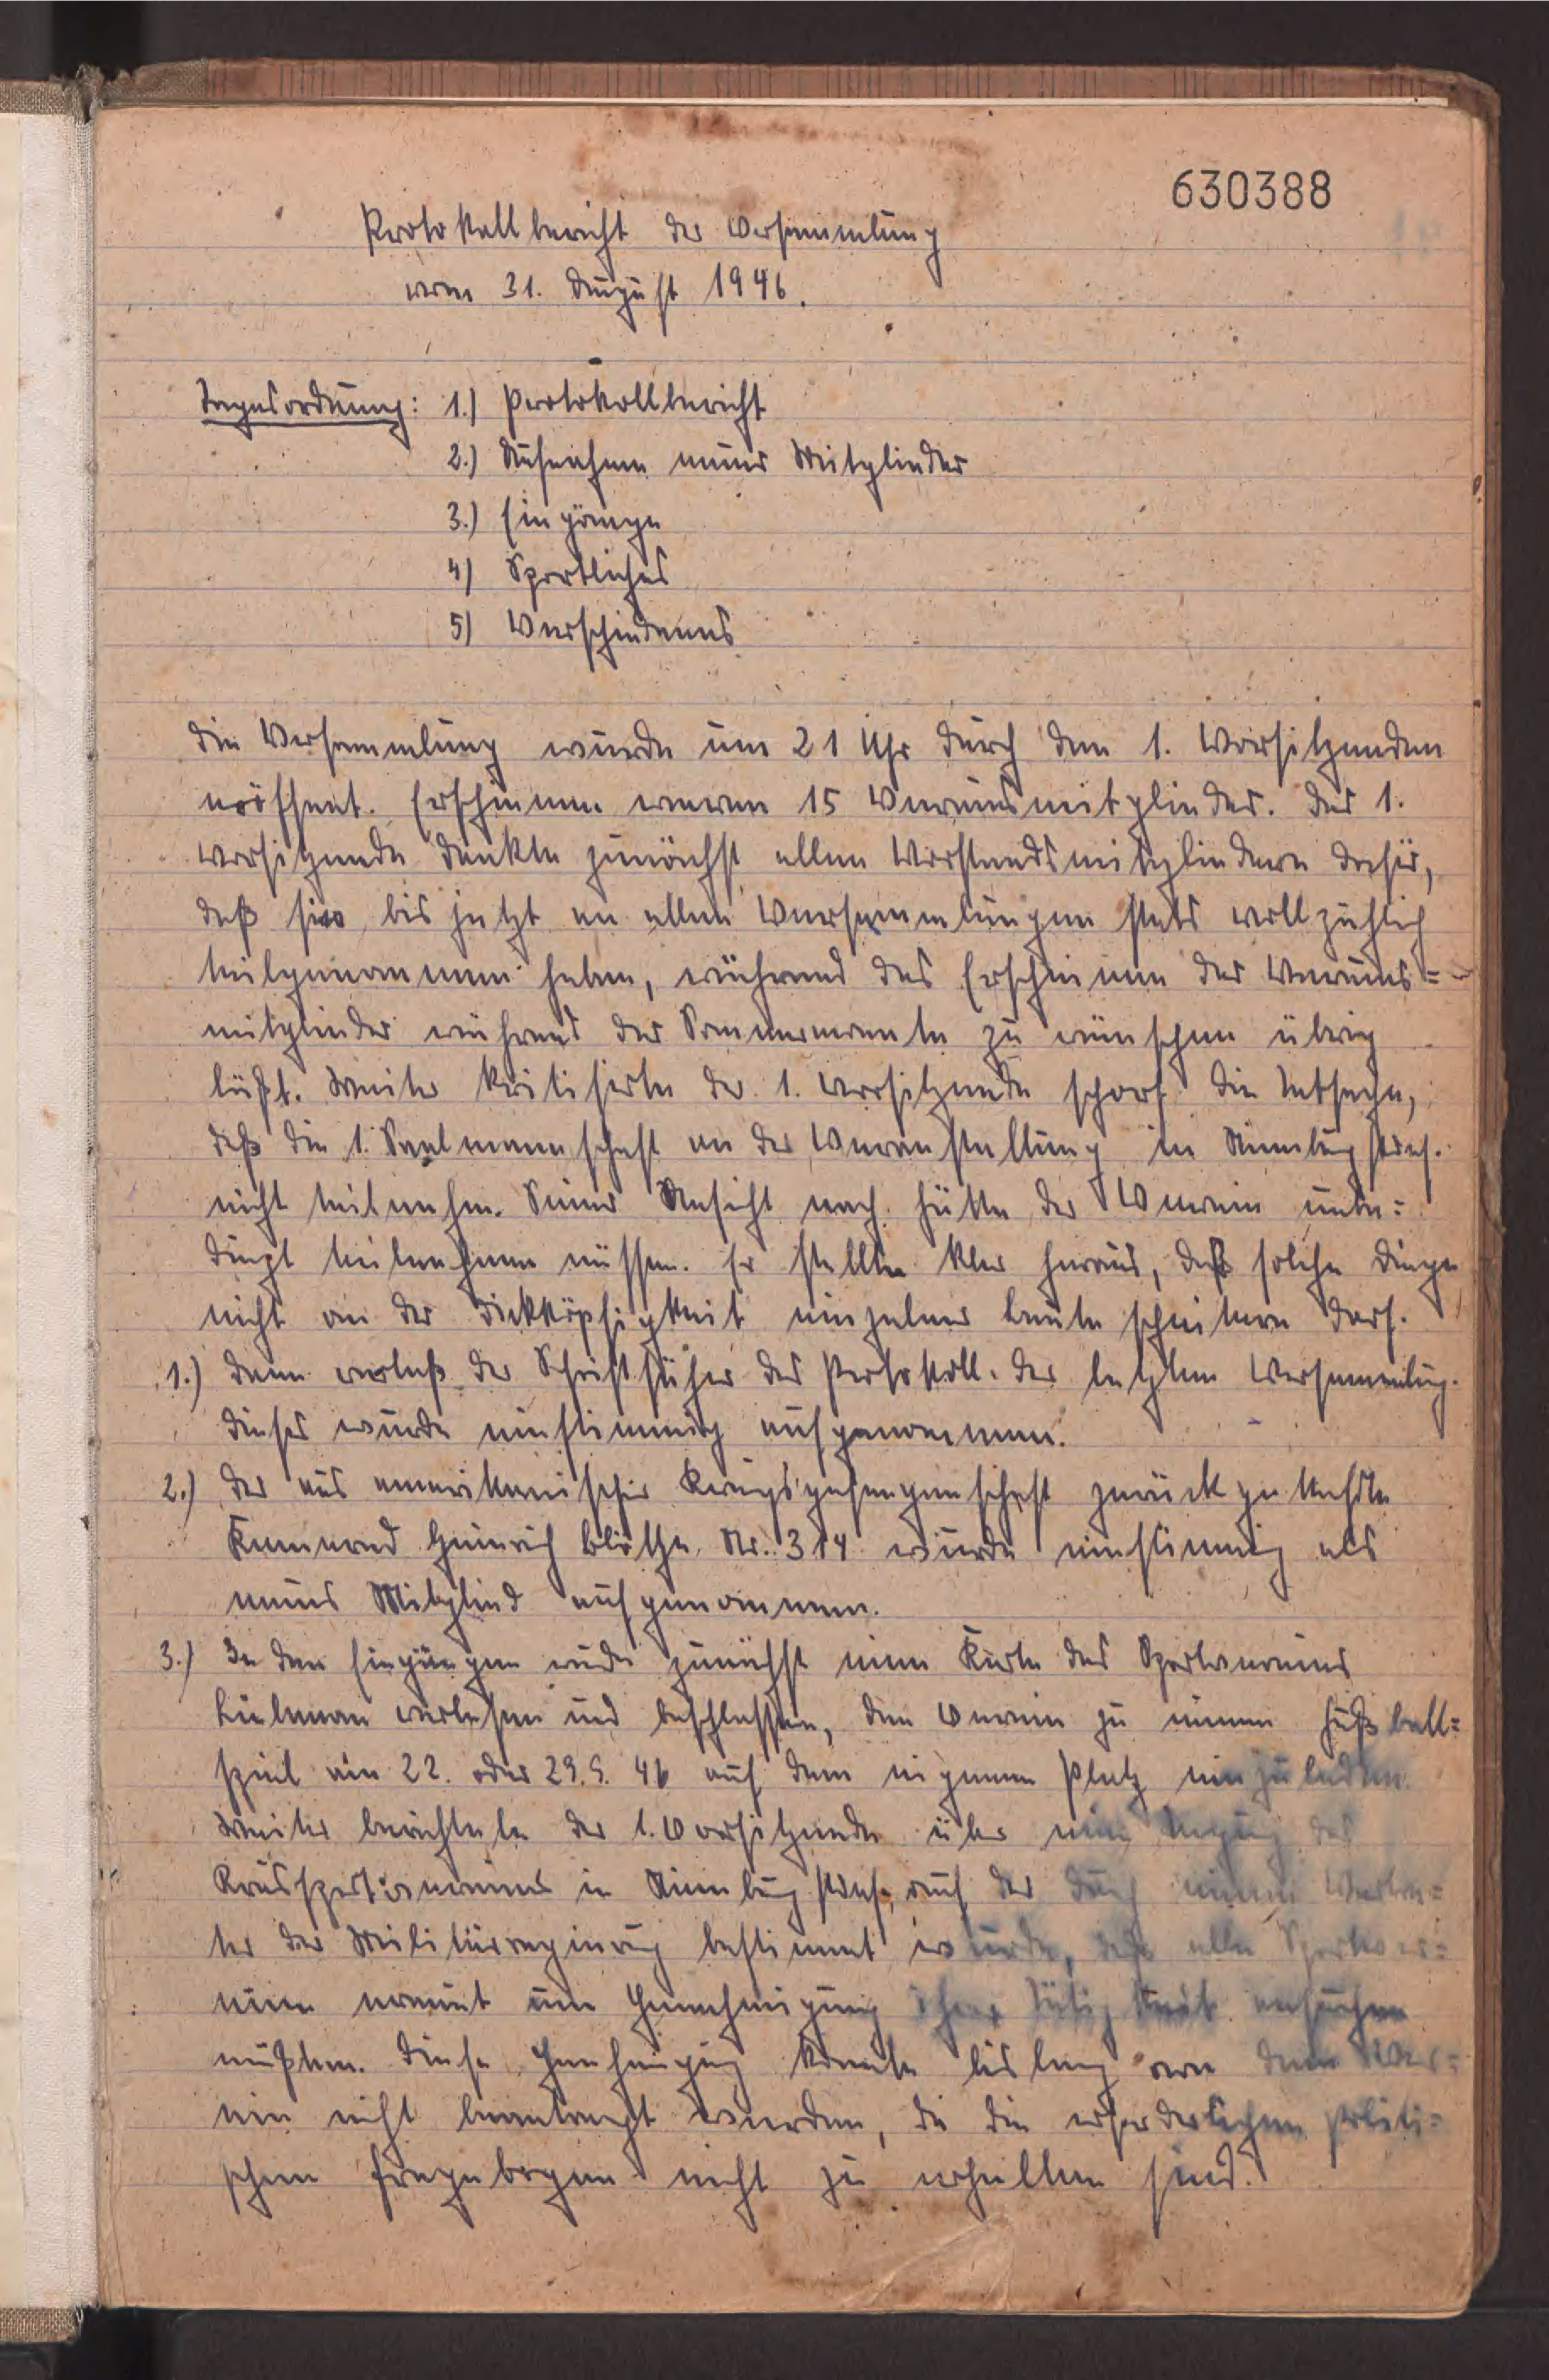 630388
Protokollbericht der Versammlung
vom 31. August 1946.
Tagesordnung: 1.) Protokollbericht
2.) Aufnahme neuer Mitglieder
3.) Eingänge
4) Sportliches
5) Verschiedenes
Die Versammlung wurde um 21 Uhr durch den 1. Vorsitzenden
eröffnet. Erschienen waren 15 Vereinsmitglieder. Der 1.
Vorsitzende dankte zunächst allen Vorstandsmitgliedern dafür,
daß sie bis jetzt an allen Versammlungen stets vollzählig
teilgenommen haben, während das Erscheinen der Vereins=
mitglieder während der Sommermonate zu wünschen übrig
läßt. Weiter kritisierte der 1. Vorsitzende scharf die Tatsache,
daß die 1. Saalmannschaft an der Veranstaltung in
nicht teilnahm. Seiner Ansicht nach hätte der Verein unbe=
dingt teilnehmen müssen. Er stellte klar heraus, daß solche Dinge
nicht an der Dickköpfigkeit einzelner Leute scheitern darf.
1.) Dann verlaß der Schriftfüher das Protokoll der letzten Versammlung.
Dieses wurde einstimmig aufgenommen.
2.) Der aus amerikanischer Kriegsgefangenschaft zurückgekehrte
Kamerad Heinrich Nr. 314 wurde einstimmig als
neues Mitglied aufgenommen.
3.) In den Eingängen wurde zunächst eine Karte des Sportvereins
verlesen und beschlossen, den Verein zu einem Fußball=
spiel am 22. oder 29.9. 46 auf dem eigenen Platz einzuladen.
Weiter berichtete der 1. Vorsitzende über eine Tagung des
Kreissportvereins in auf der durch einen Vertre=
ter der Militärregierung bestimmt wurde, daß alle Sportver=
eine erneut um Genehmigung ihrer Tätigkeit ansuchen
müßten. Diese Genehmigung konnte bislang von dem Ver=
ein nicht beantragt werden, da die erforderlichen politi=
schen Fragebogen nicht zu erhalten sind.